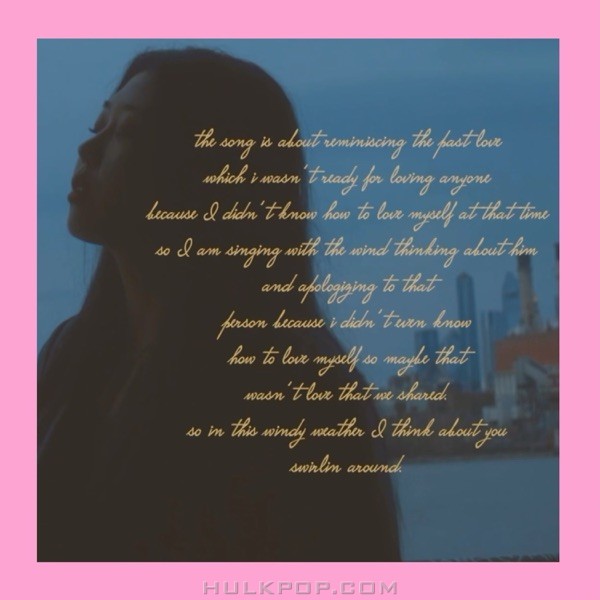 the song is about reminiscing the past love
which i wasn't ready for loving anyone
because I didn't know how to love myself at that time
so I am singing with the wind thinking about him
and apologizing to that
person because i didn't even know
how to love myself so maybe that
wasn't love that we shared.
so in this windy weather I think about you
swirlin around.
HULKPOP.COM